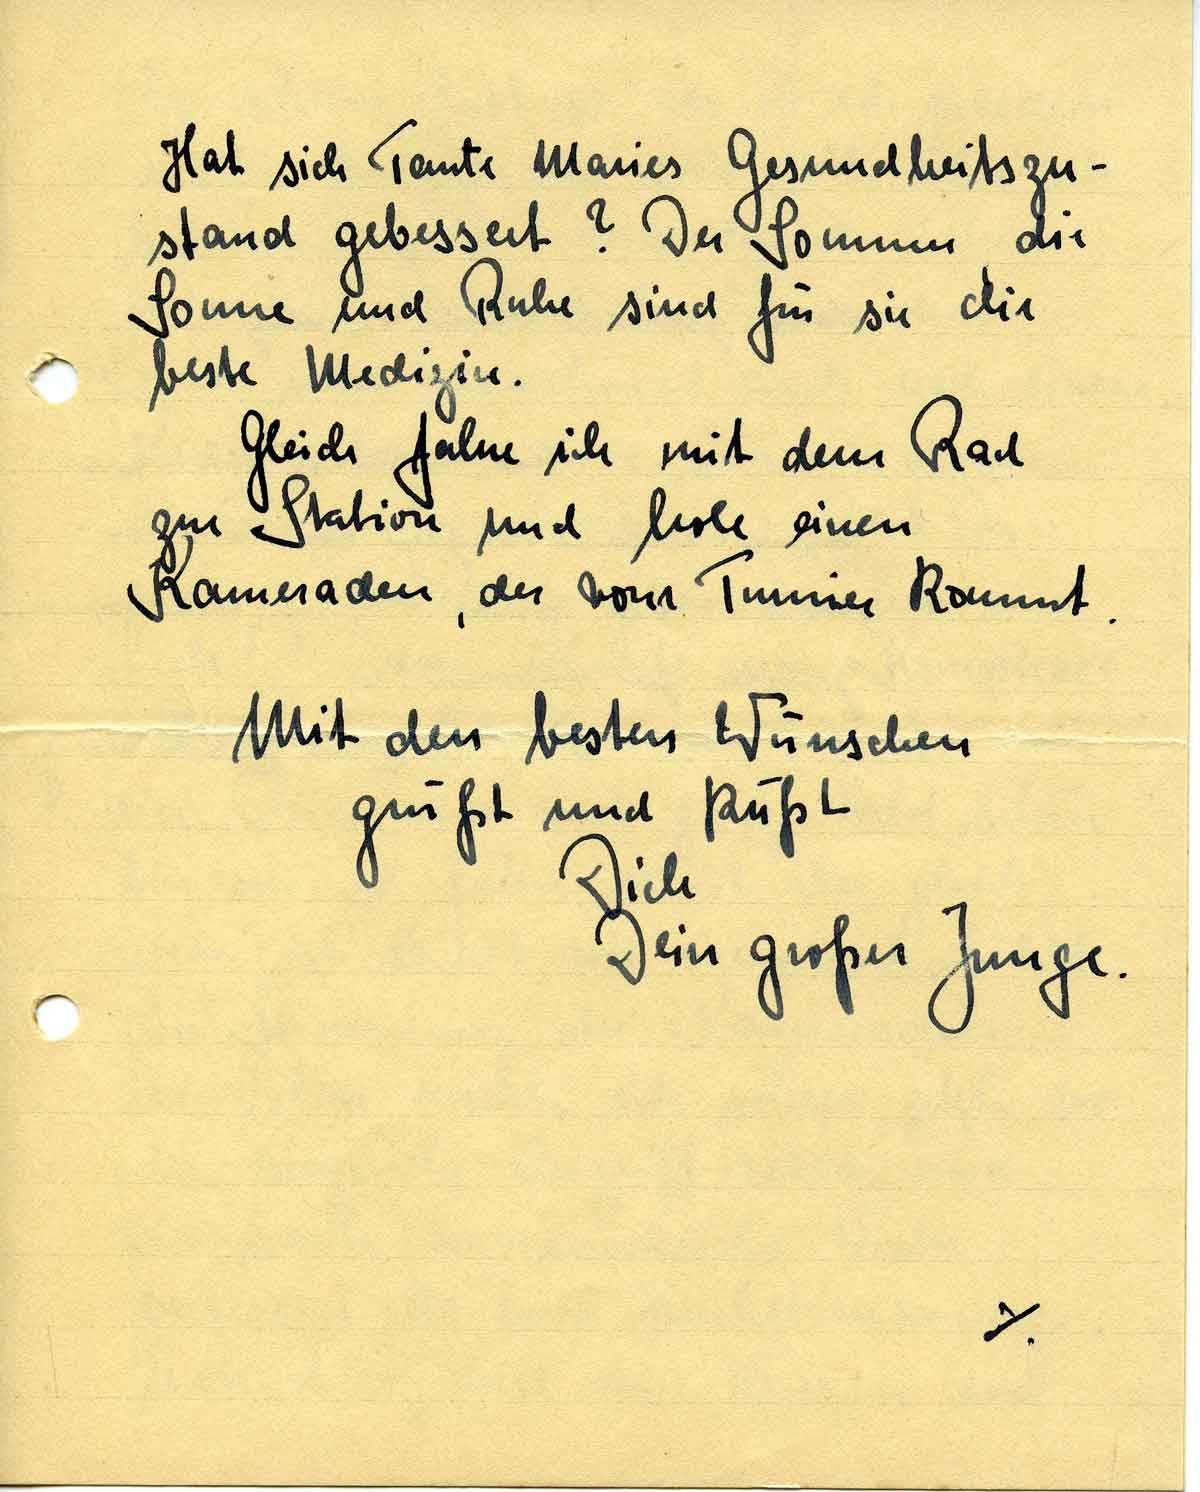 Hat sich Tante Maries Gesundheitszu-
stand gebessert? Der Sommer, die
Sonne und Ruhe sind für sie die
beste Medizin.
Gleich fahre ich mit dem Rad
zur Station und hole einen
Kameraden, der vom Turnier kommt.
Mit den besten Wünschen
grüßt und küßt
Dich
Dein großer Junge.